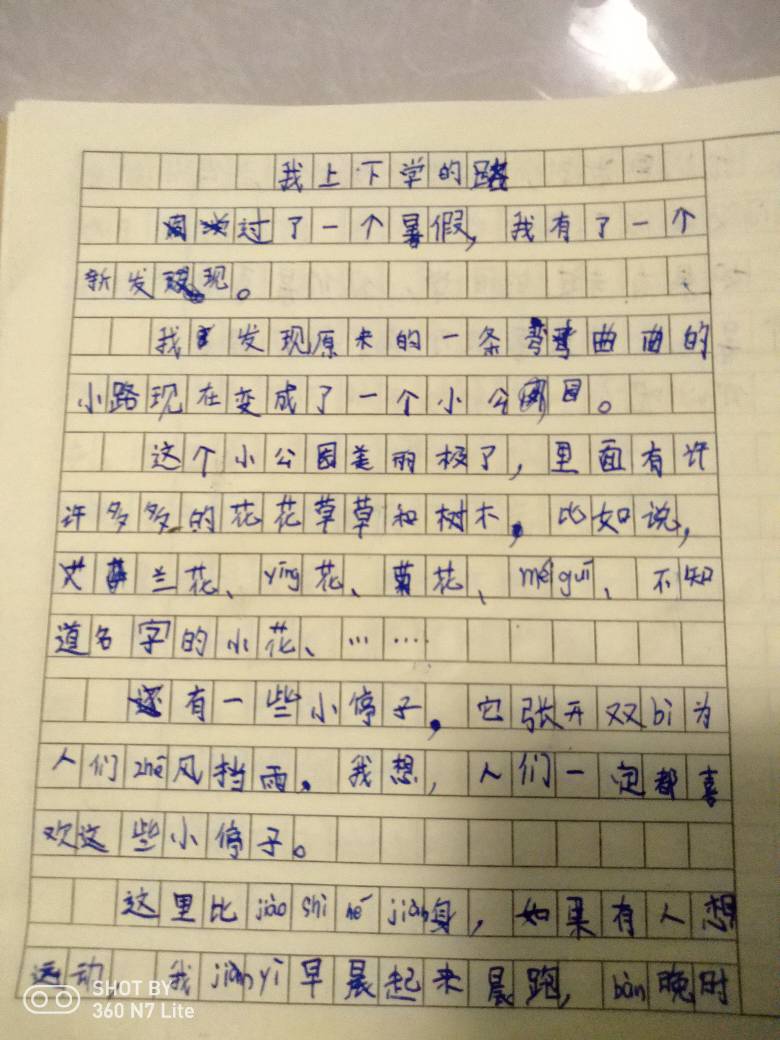 我上下学的路
过了一个暑假，我有了一个
新发现。
我发现原来的一条弯弯曲曲的
小路现在变成了一个小公园。
这个小公园美丽极了，里面有许
许多多的花花草草和树木，比如说，
兰花、yīng花、菊花、méi guī、不知
道名字的小花、……
还有一些小停子，它张开双bì为
人们zhē风挡雨。我想，人们一定都喜
欢这些小停子。
这里比jiào shì hé jiàn身，如果有人想
运动，我jiàn yì早晨起来晨跑，bàn晚时
SHOT BY
360 N7 Lite